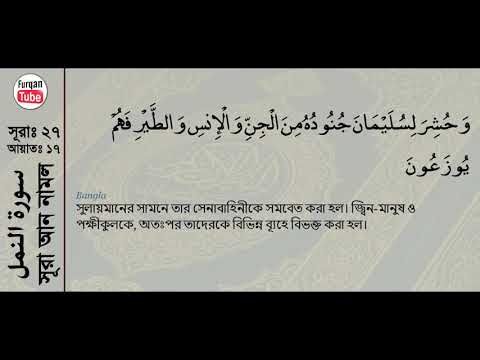 Furqan
Tube
সূরাঃ ২৭
আয়াতঃ ১৭
سورة النمل
সূরা আন নামল
وَحُشِرَ لِسُلَيْمَانَ جُنُودُهُ مِنَ الْجِنِّ وَالْإِنسِ وَالطَّيْرِ فَهُمْ
يُوزَعُونَ
Bangla
সুলায়মানের সামনে তার সেনাবাহিনীকে সমবেত করা হল। জ্বিন-মানুষ ও
পক্ষীকুলকে, অতঃপর তাদেরকে বিভিন্ন ব্যূহে বিভক্ত করা হল।